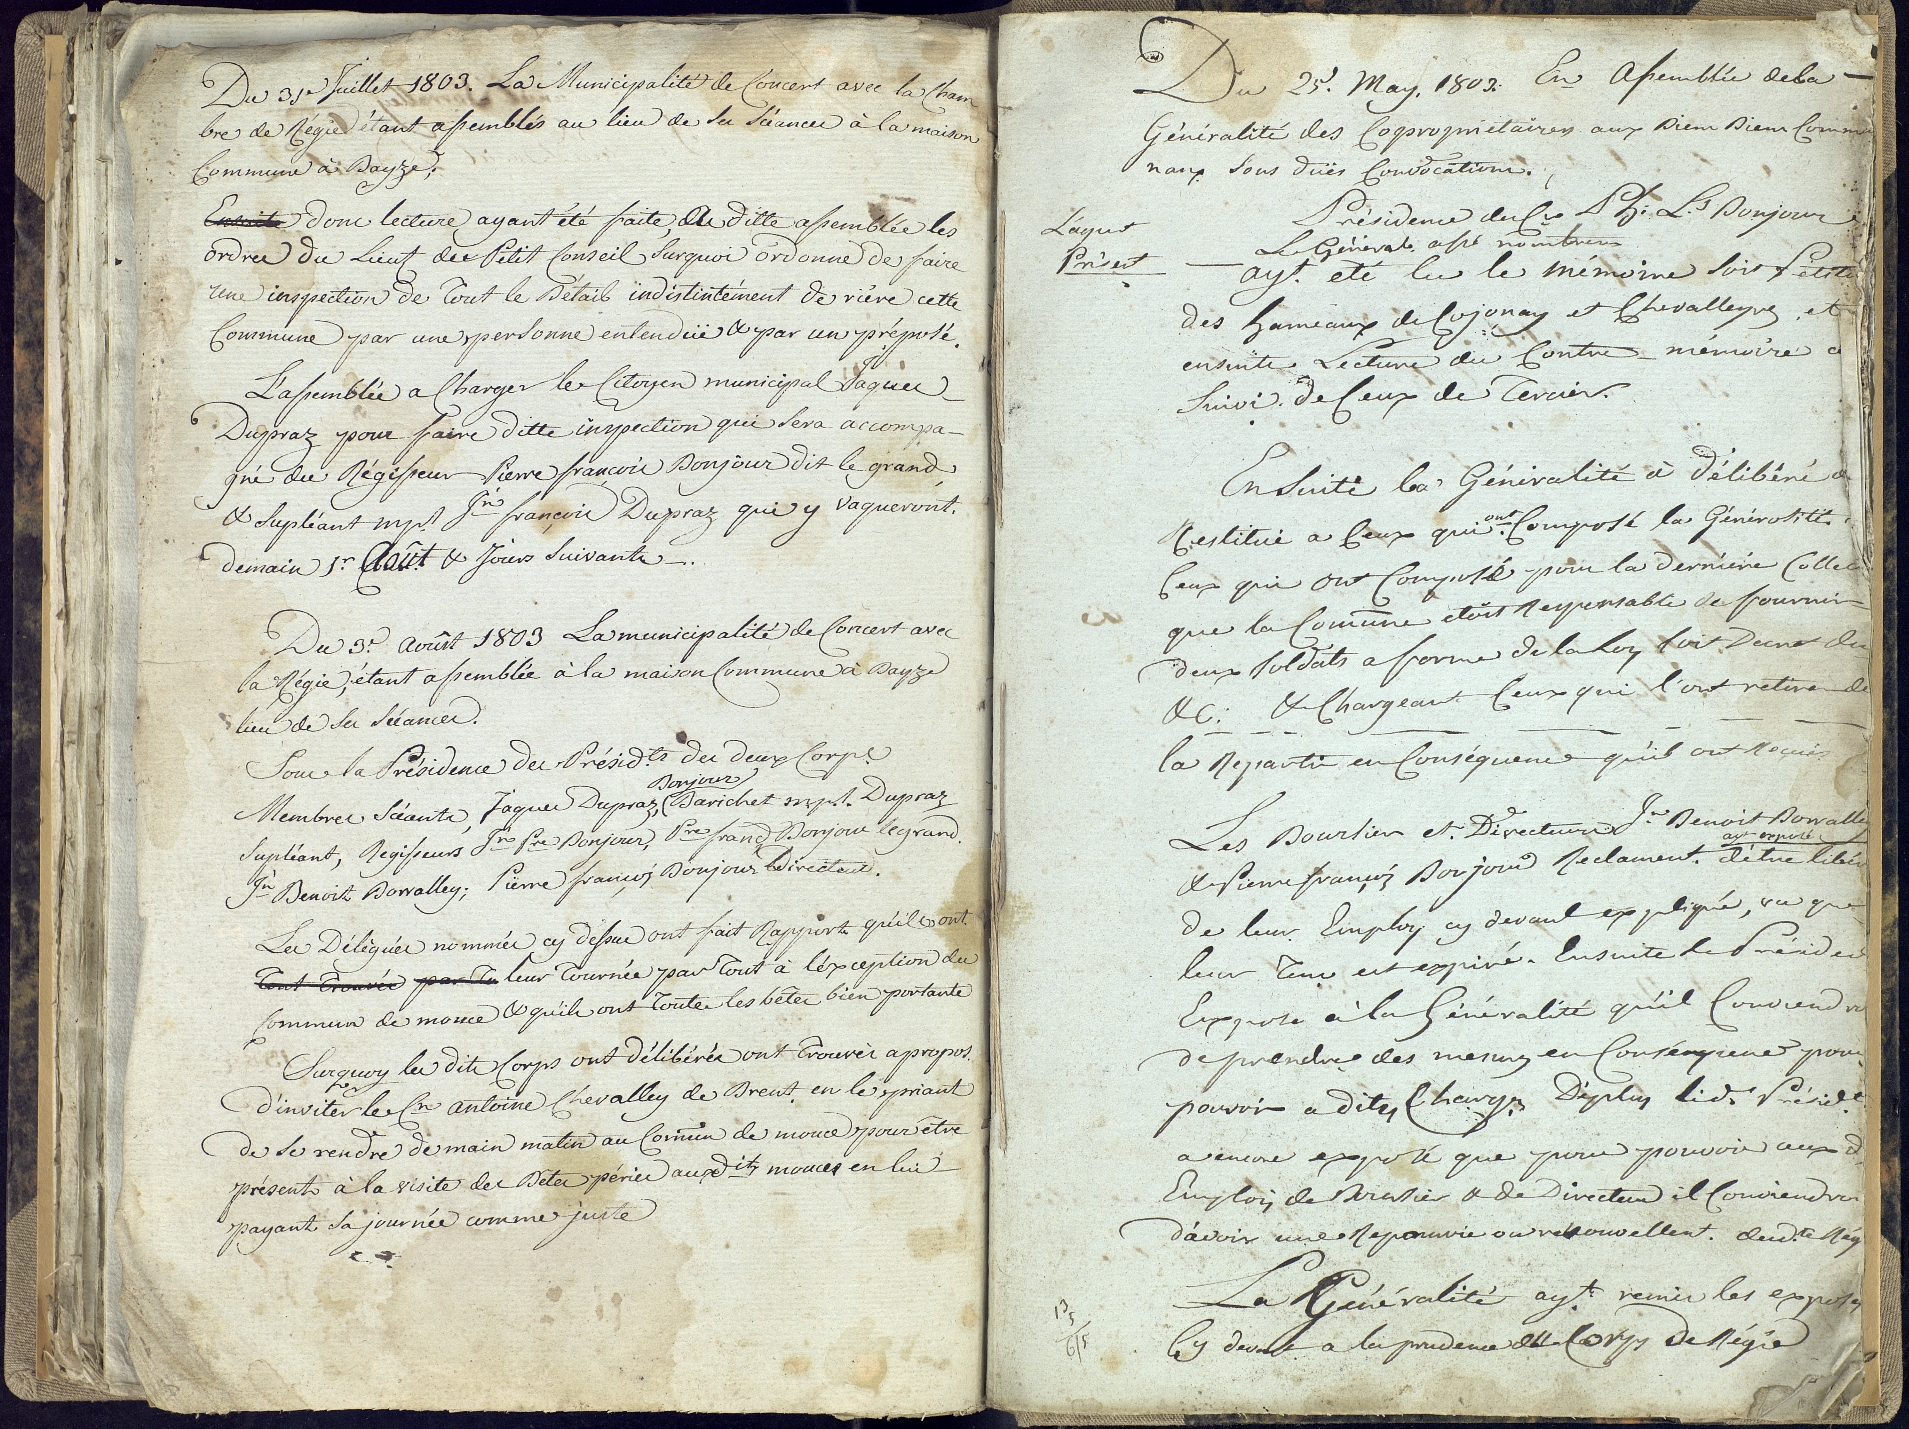 Du 31e Juillet 1803. La Municipalité de Concert avec la Cham
bre de Régie étant assemblés au lieu de ses Séances à la maison
Commune à Bayze;
Ensuite donc lecture ayant été faite, de ditte assemblée les
ordres du Lieut des Petit Conseil Surquoi ordonne de faire
une inspection de Tout le Bétail indistintement de rière cette
Commune par une personne entendüe & par un préposé.
L'assemblée a Charger le Citoyen municipal Jaques
Dupraz pour faire ditte inspection qui sera accompa-
gné du Régisseur Pierre françois Bonjour dit le grand
& supléant mpl Jn françois Dupraz qui y vaqueront.
demain 1r Août & Jours suivants -.
Du 3e. Août 1803 La municipalité de Concert avec
la Régie, étant assemblée à la maison Commune à Bayze
lieu de ses séances.
Sous la Présidence des Présidts des deux Corps
Bonjour
Membres Séants, Jaques Dupraz, Barichet mpl. Dupraz
supléant, Régisseurs Jn Pre Bonjour, Pre franç Bonjour le grand.
Jn Benoit Borralley; Pierre françoi Bonjour Directeur.
Les Délégués nommés cy dessus ont fait Rapport qu'ils ont
tout trouvés par tu leur Tournée par Tout à l'exception des
Commun de mouce & qu'ils ont Toutes les bêtes bien portante
Surquoy les dits Corps ont délibérés ont Trouvés apropos.
d'inviter le Cn antoine Chevalley de Brent. en le priant
de se rendre demain matin au Comun de mouce pour être
présents à la visite des Bêtes péries auxdits mouces en lui
payant sa journée comme juste
Du 25e. May. 1803. En Assemblée de la -
Généralité des Copropriétaires aux Biens Biens Commu
naux Sous düës Convocations.
Présidence du Cn Ph: Ls Bonjour
L'aqut
Présent
La Générale assé nombreux
ayt. été lu le mémoire soit Petit
des hameaux de Cojonay et Chevalleyres et
ensuite Lecture du Contre mémoire a
Suivi de Ceux de Tercier.
Ensuite la Généralité à Délibéré de
Restitué a Ceux qui ont Composé la Générosité
Ceux qui ont Composé pour la dernière Colle
que la Commune étoit Responsable de fournir
deux soldats a forme de la Loy soit Decret du
&C: & Chargeant Ceux qui l'ont retiré de
la Repartir en Conséquence qu'il ont Reçus
Les Boursier et Directeur Jn Benoit Borralle
ayt exposé
& Pierre françoi Bonjour Reclament. d'être libér
de leur Employ cy devant expliqué, vu que
leur Tems est expiré. Ensuite le Présiden
Expose à la Généralité qu'il Conviendra
de prendre des mesures en Conséquence pour
pouvoir a dites Charges Déplus led. Présidt
a encore exposé que pour pouvoir aux d
Emploi de Boursier & de Directeur il Conviendra
d'avoir une Repouvüe ou renouvellemt. deudte Rég
La Généralité ayt. remis les exposés
Cy devant a la prudence du Corps de Régie
13
5
6/5